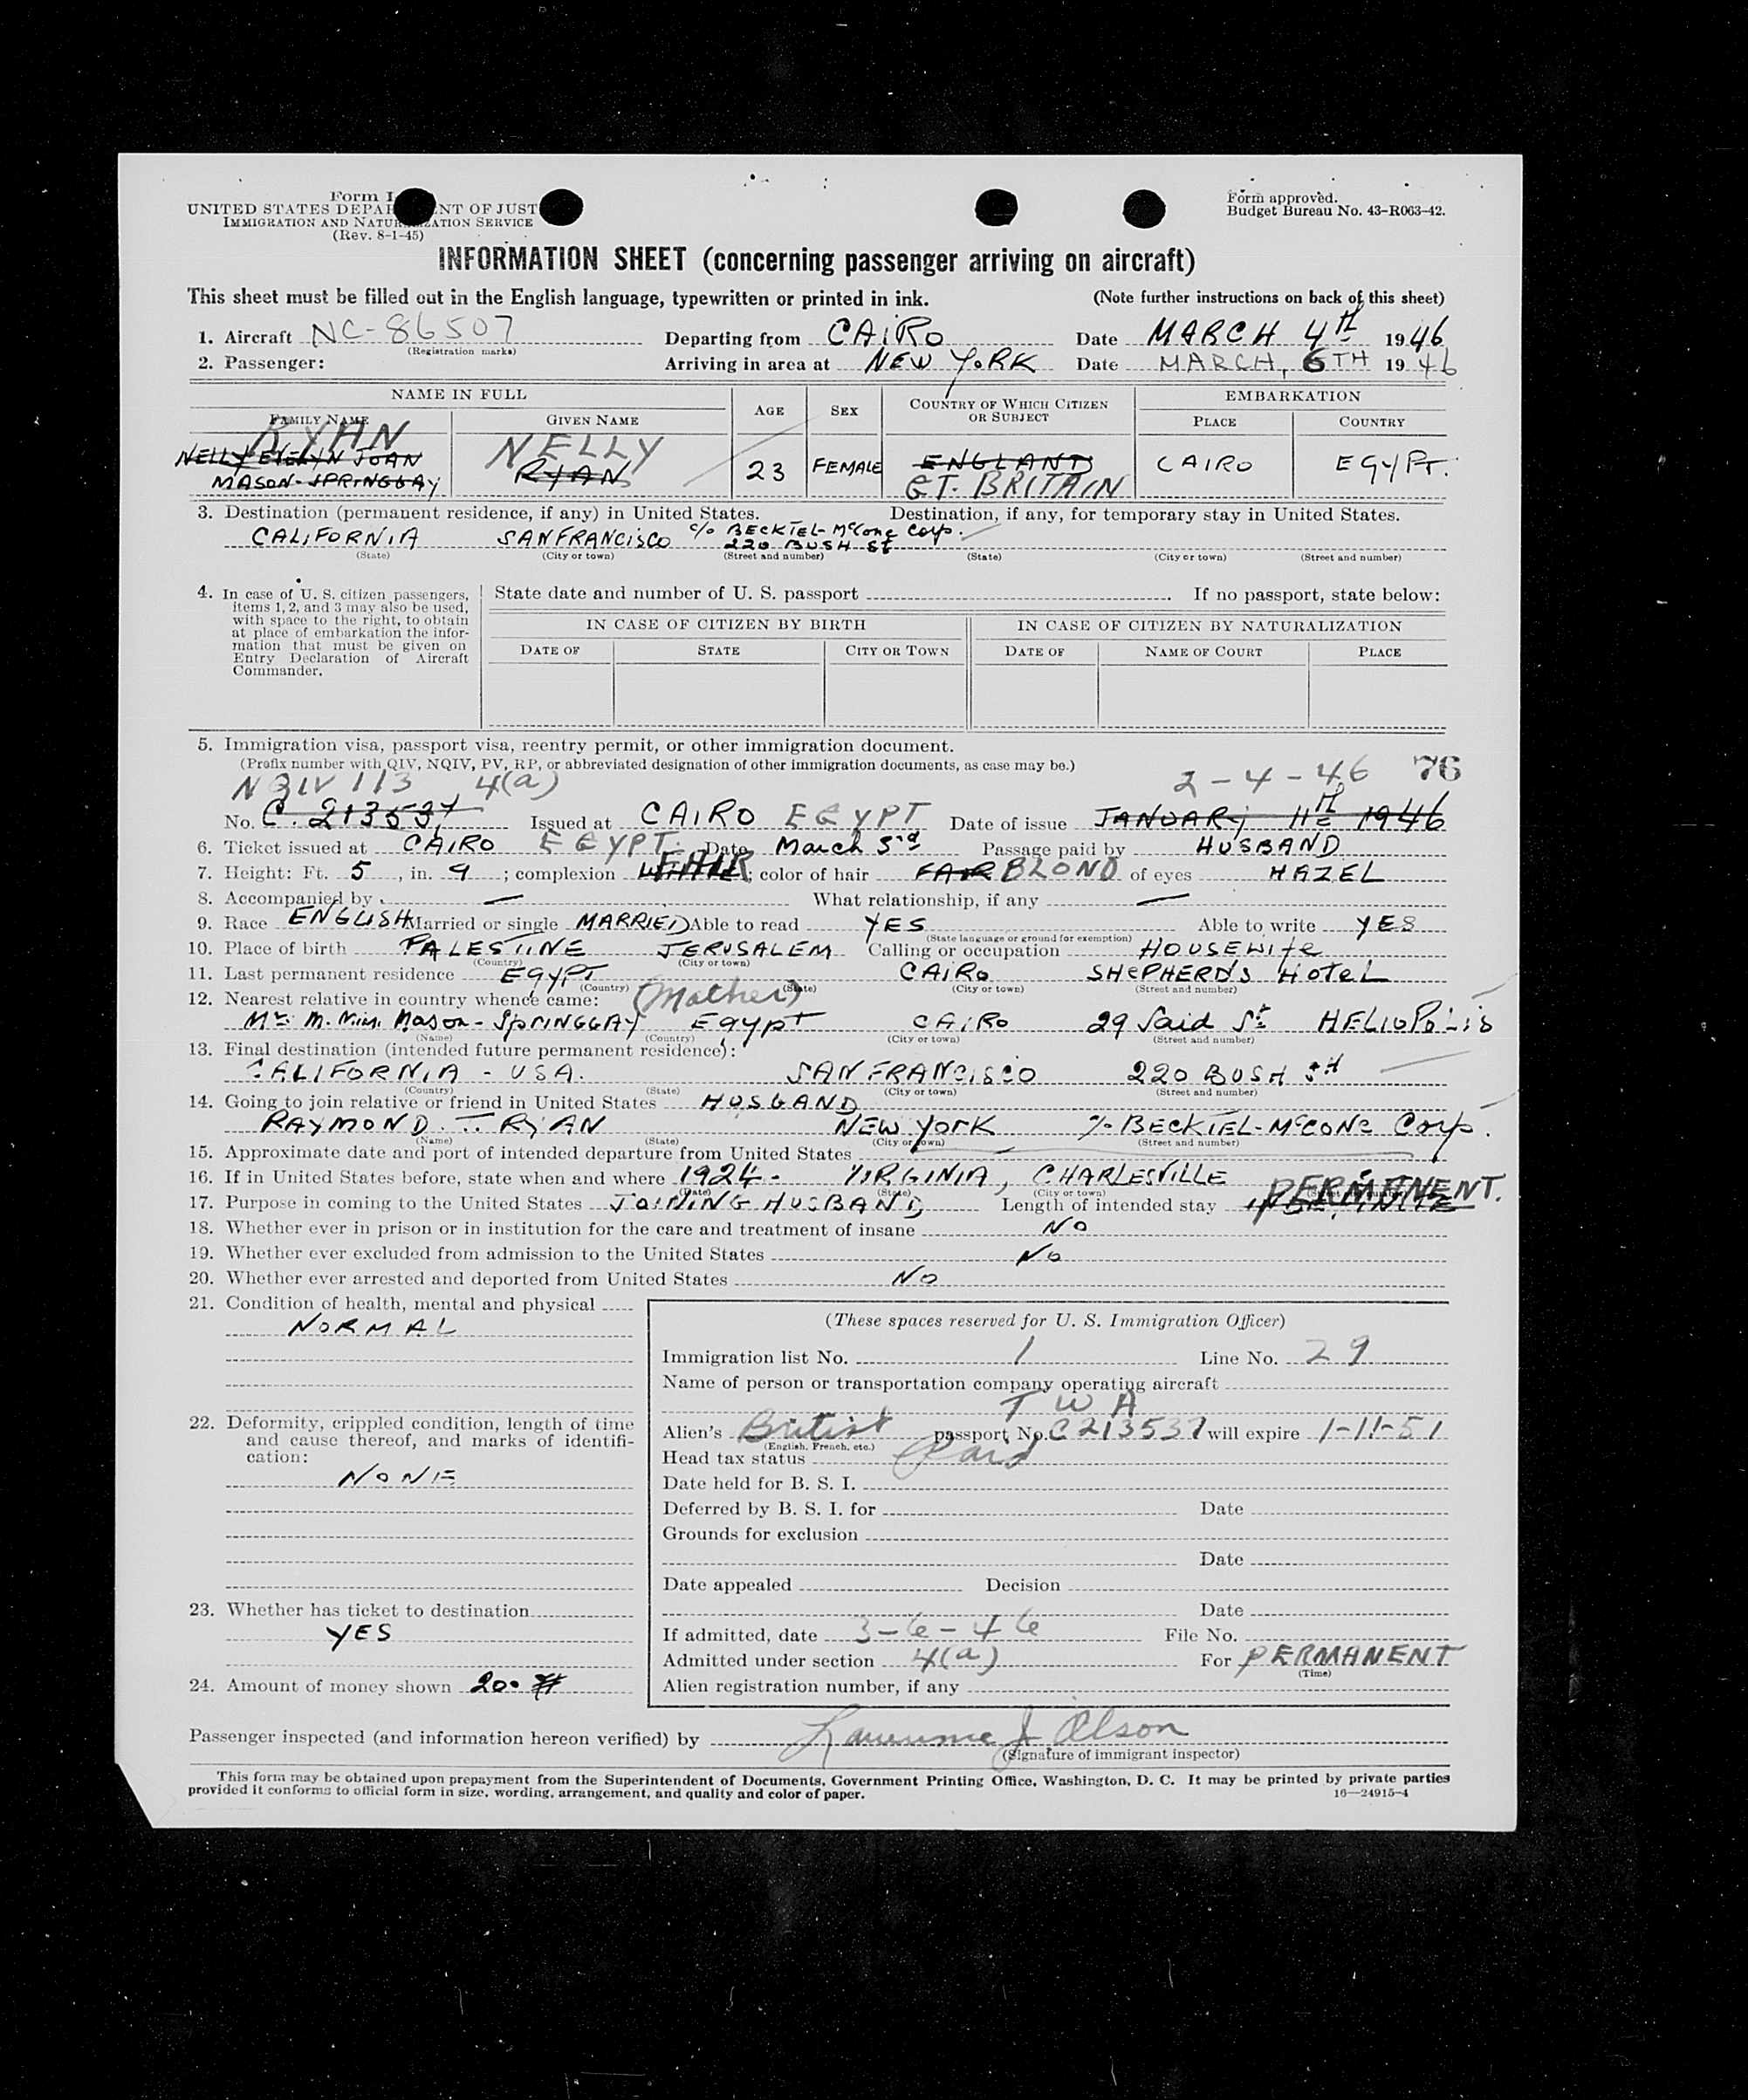 Form I
UNITED STATES DEPAR ENT OF JUST
IMMIGRATION AND NATUR ZATION SERVICE
(Rev. 8-1-45)
Form approved.
Budget Bureau No. 43-R063-42.
INFORMATION SHEET (concerning passenger arriving on aircraft)
This sheet must be filled out in the English language, typewritten or printed in ink. (Note further instructions on back of this sheet)
1. Aircraft NC-86507 Departing from CAIRO Date MARCH 4th 1946
(Registration marks)
2. Passenger: Arriving in area at NEW YORK Date MARCH, 6TH 1946
NAME IN FULL AGE SEX COUNTRY OF WHICH CITIZEN OR SUBJECT EMBARKATION
FAMILY NAME GIVEN NAME PLACE COUNTRY
RYAN NELLY
NELLY EVELYN JOAN RYAN 23 FEMALE ENGLAND CAIRO EGYPT.
MASON-SPRINGGAY GT. BRITAIN
3. Destination (permanent residence, if any) in United States. Destination, if any, for temporary stay in United States.
CALIFORNIA SANFRANCISCO c/o BECKTEL-McCone Corp.
220 BUSH St
(State) (City or town) (Street and number) (State) (City or town) (Street and number)
4. In case of U. S. citizen passengers, items 1, 2, and 3 may also be used, with space to the right, to obtain at place of embarkation the information that must be given on Entry Declaration of Aircraft Commander.
State date and number of U. S. passport . If no passport, state below:
IN CASE OF CITIZEN BY BIRTH IN CASE OF CITIZEN BY NATURALIZATION
DATE OF STATE CITY OR TOWN DATE OF NAME OF COURT PLACE
5. Immigration visa, passport visa, reentry permit, or other immigration document.
(Prefix number with QIV, NQIV, PV, RP, or abbreviated designation of other immigration documents, as case may be.)
NQIV 113 4(a) 2-4-46 76
No. C. 213537 Issued at CAIRO EGYPT Date of issue JANUARY 11th 1946
6. Ticket issued at CAIRO EGYPT. Date March 3rd Passage paid by HUSBAND
7. Height: Ft. 5, in. 9; complexion FAIR; color of hair FAIR BLOND of eyes HAZEL
8. Accompanied by — What relationship, if any —
9. Race ENGLISH Married or single MARRIED Able to read YES Able to write YES
(State language or ground for exemption)
10. Place of birth PALESTINE JERUSALEM Calling or occupation HOUSEWIFE
(Country) (City or town)
11. Last permanent residence EGYPT CAIRO SHEPHERD'S HOTEL
(Country) (State) (City or town) (Street and number)
12. Nearest relative in country whence came: (Mother)
Mason-SPRINGGAY Egypt CAIRO 29 Said St HELIOPOLIS
(Name) (Country) (City or town) (Street and number)
13. Final destination (intended future permanent residence):
CALIFORNIA - USA. SAN FRANCISCO 220 BUSH St
(Country) (State) (City or town) (Street and number)
14. Going to join relative or friend in United States HUSBAND
RAYMOND. T. RYAN NEW YORK % BECKTEL-McCONE Corp.
(Name) (State) (City or town) (Street and number)
15. Approximate date and port of intended departure from United States
16. If in United States before, state when and where 1924. VIRGINIA, CHARLESVILLE
(Date) (State) (City or town) (Street and number)
17. Purpose in coming to the United States JOINING HUSBAND Length of intended stay INDEFINITE PERMANENT.
18. Whether ever in prison or in institution for the care and treatment of insane No
19. Whether ever excluded from admission to the United States No
20. Whether ever arrested and deported from United States No
21. Condition of health, mental and physical
NORMAL
22. Deformity, crippled condition, length of time and cause thereof, and marks of identification:
NONE
23. Whether has ticket to destination
YES
24. Amount of money shown 200 $
(These spaces reserved for U. S. Immigration Officer)
Immigration list No. 1 Line No. 29
Name of person or transportation company operating aircraft
T W A
Alien's British passport No. C213537 will expire 1-11-51
(English, French, etc.)
Head tax status Paid
Date held for B. S. I.
Deferred by B. S. I. for Date
Grounds for exclusion
Date
Date appealed Decision
Date
If admitted, date 3-6-46 File No.
Admitted under section 4(a) For PERMANENT
(Time)
Alien registration number, if any
Passenger inspected (and information hereon verified) by Lawrence J. Olson
(Signature of immigrant inspector)
This form may be obtained upon prepayment from the Superintendent of Documents, Government Printing Office, Washington, D. C. It may be printed by private parties
provided it conforms to official form in size, wording, arrangement, and quality and color of paper. 16—24915-4